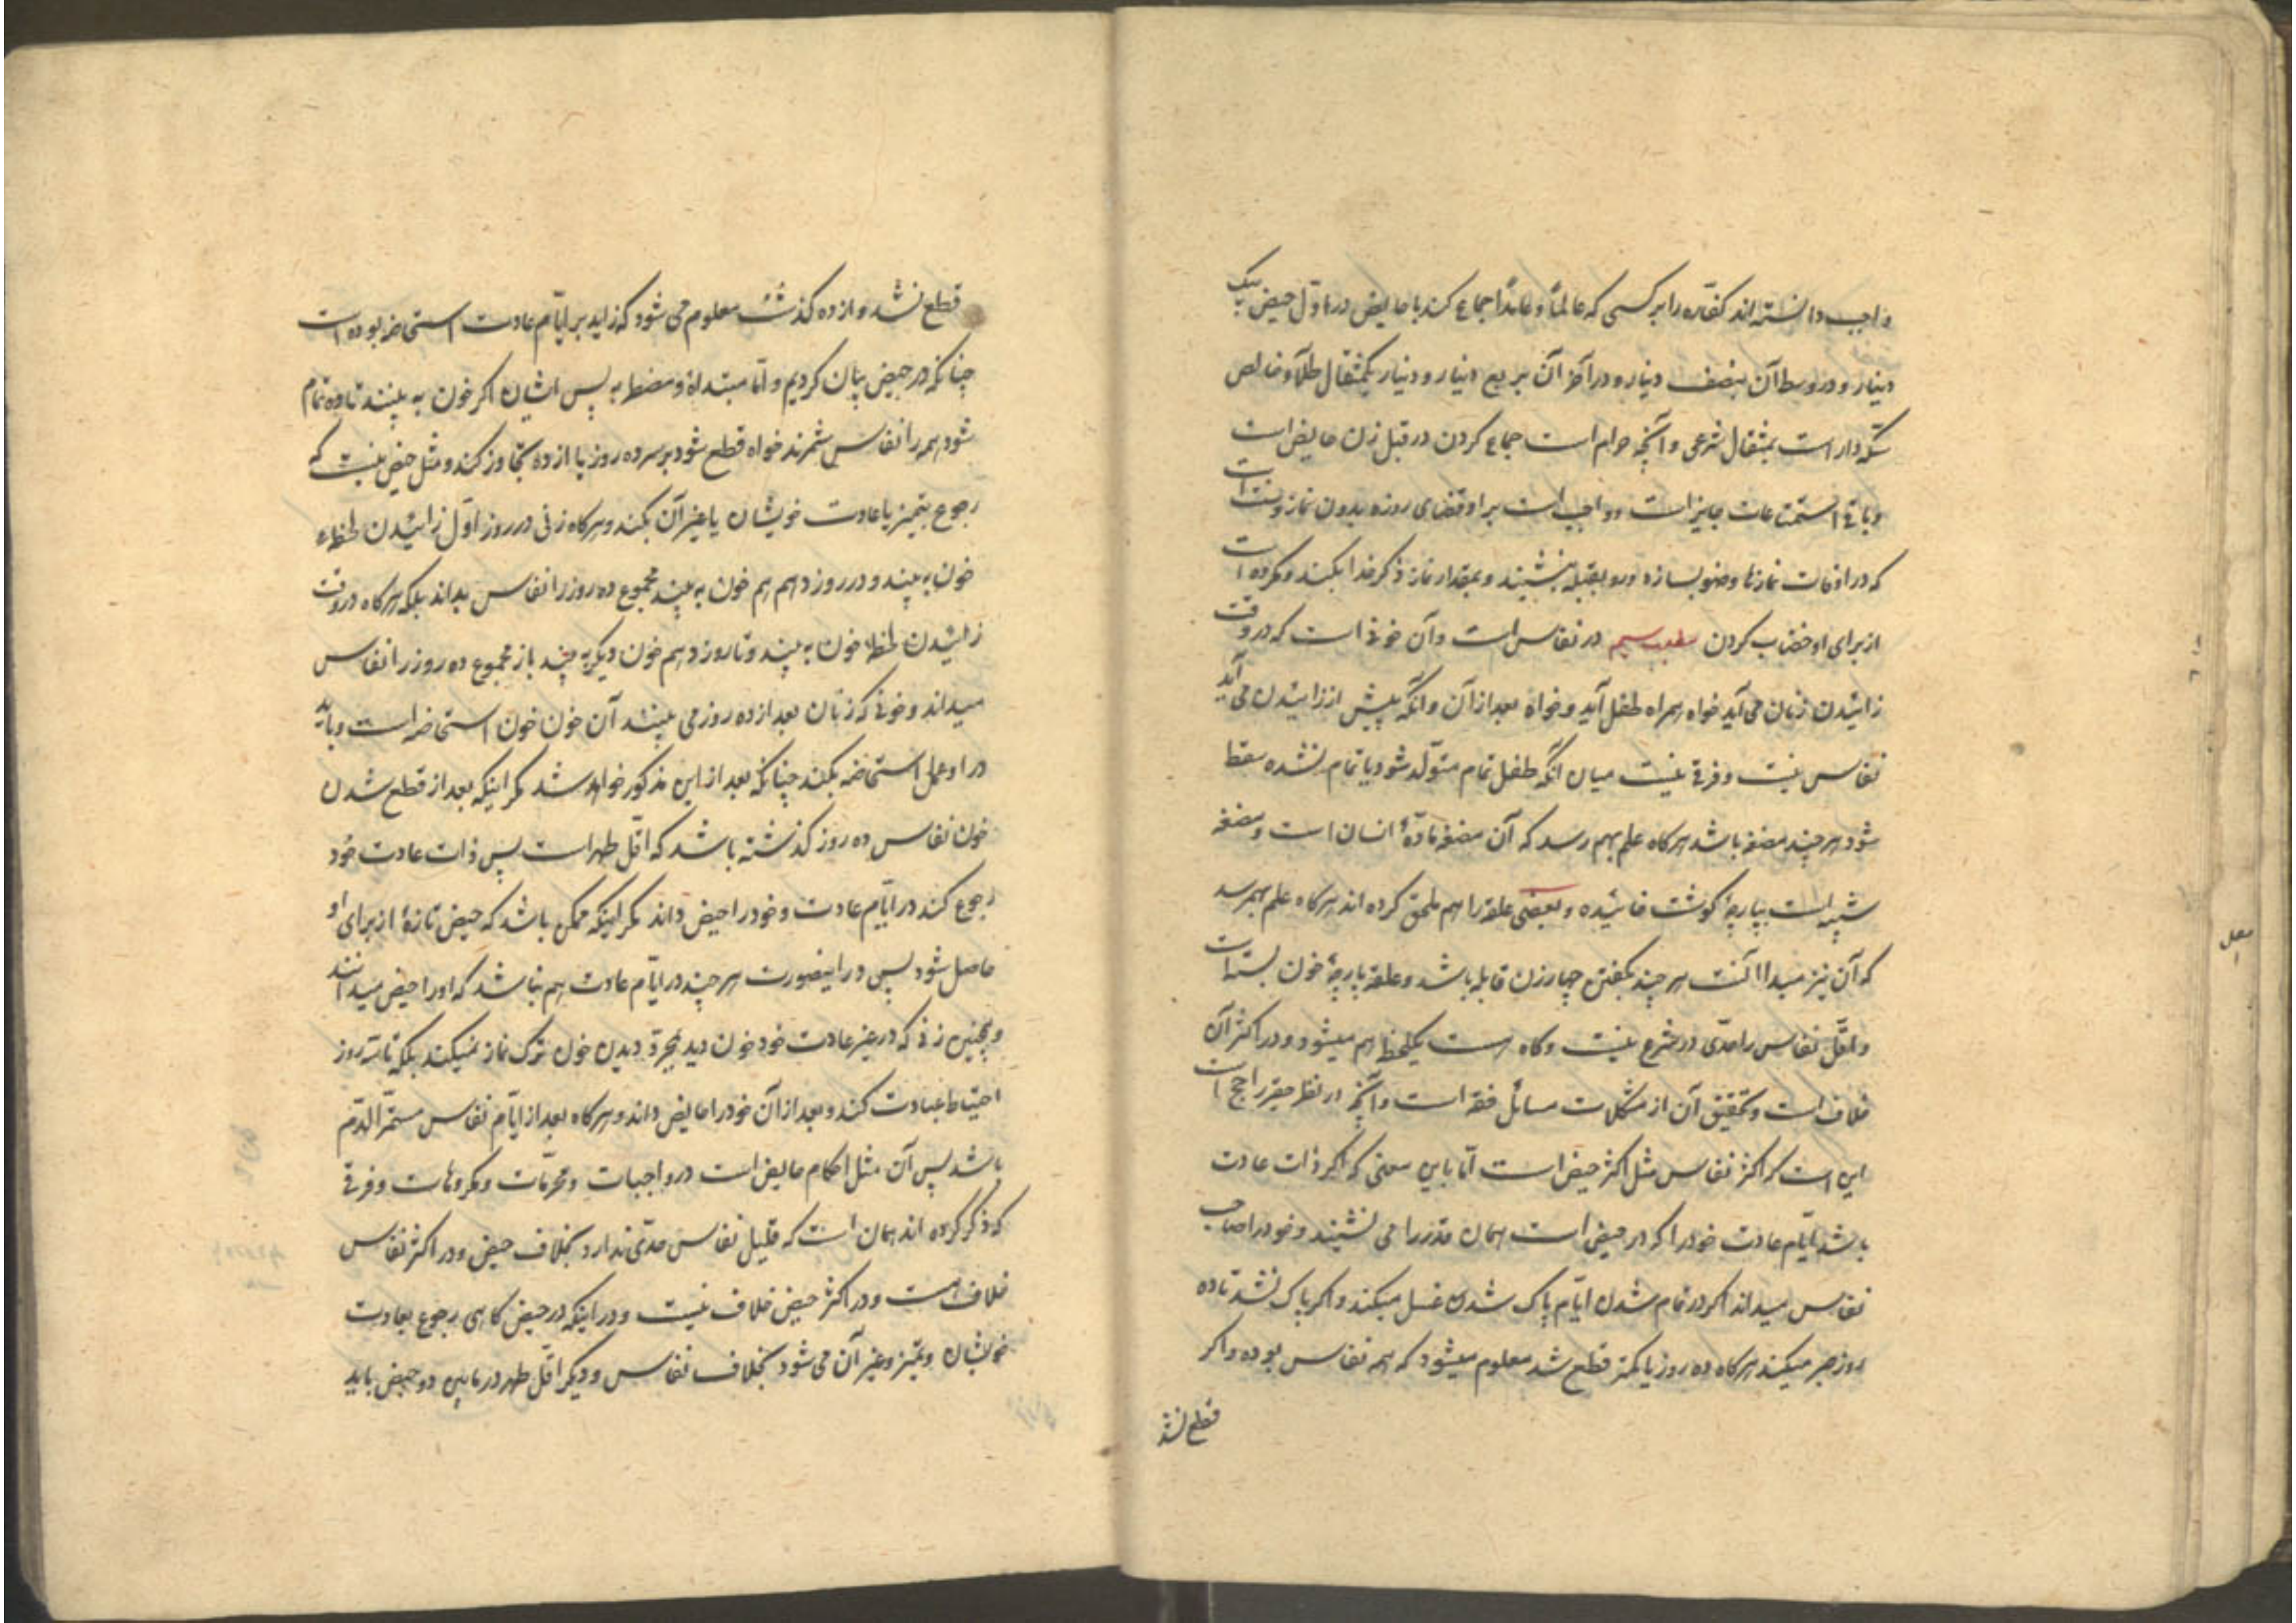 واجب دانسته‌اند کفاره را بر کسی که عالماً و عامداً جماع کند با حایض در اول حیض بیک
دینار و در وسط آن بنصف دینار و در آخر آن بربع دینار و دینار یکمثقال طلاء خالص
سکّه دار است بمثقال شرعی و آنچه حرام است جماع کردن در قبل زن حایض است
و باقی استمتاعات جایز است و واجب است بر او قضای روزه بدون نماز و سنت است
که در اوقات نمازها وضو بسازد و رو بقبله بنشیند و بمقدار نماز ذکر خدا بکند و مکروه است
از برای او خضاب کردن مطلب سیم در نفاس است و آن خونی است که در وقت
زائیدن زنان می آید خواه همراه طفل آید و خواه بعد از آن و انکه پیش از زائیدن می آید
نفاس نیست و فرقی نیست میان انکه طفل تمام متولّد شود یا تمام نشده سقط
شود هر چند مضغه باشد هرکاه علم بهم رسد که آن مضغه مادّهٔ انسان است و مضغه
شبیه است بپارچهٔ کوشت خائیده و بعضی علقه را هم ملحق کرده اند هرکاه علم بهم رسد
که آن نیز مبدا است هر چند بکفتن چهار زن قابله باشد و علقه پارچهٔ خون بسته است
و اقلّ نفاس را حدّی در شرع نیست و کاه هست یکلحظه هم میشود و در اکثر آن
خلاف است و تحقیق آن از مشکلات مسائل فقه است و آنچه در نظر حقیر راجح است
این است که اکثر نفاس مثل اکثر حیض است امّا باین معنی که اکر ذات عادت
باشد ایّام عادت خود را که در حیض است همان قدر را می نشیند و خود را صاحب
نفاس میداند اکر در تمام شدن ایّام پاک شدن غسل میکند و اکر پاک نشد تا ده
روز صبر میکند هرکاه ده روز یا کمتر قطع شد معلوم میشود که همه نفاس بوده و اکر
قطع نشد
قطع نشد و از ده کذشت معلوم می شود که زاید بر ایّام عادت استحاضه بوده است
چنانکه در حیض بیان کردیم و امّا مبتدأة و مضطربه پس ایشان اکر خون به بینند تا ده تمام
شود همه را نفاس شمرند خواه قطع شود بر سر ده روز یا از ده تجاوز کند و مثل حیض نیست که
رجوع بتمیز یا عادت خویشان یا غیر آن بکند و هرکاه زنی در روز اوّل زائیدن لحظهٔ
خون به بیند و در روز دهم هم خون به بیند مجموع ده روز را نفاس بداند بلکه هرکاه در وقت
زائیدن لحظهٔ خون به بیند و تا روز دهم خون دیکر به بیند باز مجموع ده روز را نفاس
میداند و خونی که زنان بعد از ده روز می بینند آن خون خون استحاضه است و باید
در او عمل استحاضه بکند چنانکه بعد از این مذکور خواهد شد مکر اینکه بعد از قطع شدن
خون نفاس ده روز کذشته باشد که اقلّ طهر است پس ذات عادت خود
رجوع کند در ایّام عادت و خود را حیض داند مکر اینکه ممکن باشد که حیض تازهٔ از برای او
حاصل شود پس در اینصورت هر چند در ایّام عادت هم نباشد که او را حیض میدانند
و همچنین زنی که در غیر عادت خود خون دید بمجرّد دیدن خون ترک نماز نمیکند بلکه تا سه روز
احتیاط عبادت کند و بعد از آن خود را حایض داند و هرکاه بعد از ایّام نفاس مستمرّ الدّم
باشد پس آن مثل احکام حایض است در واجبات و محرّمات و مکروهات و فرقی
که ذکر کرده اند همان است که قلیل نفاس حدّی ندارد بخلاف حیض و در اکثر نفاس
خلاف است و در اکثر حیض خلاف نیست و در اینکه در حیض کاهی رجوع بعادت
خویشان و تمیز و غیر آن می شود بخلاف نفاس و دیکر اقلّ طهر در مابین دو حیض باید